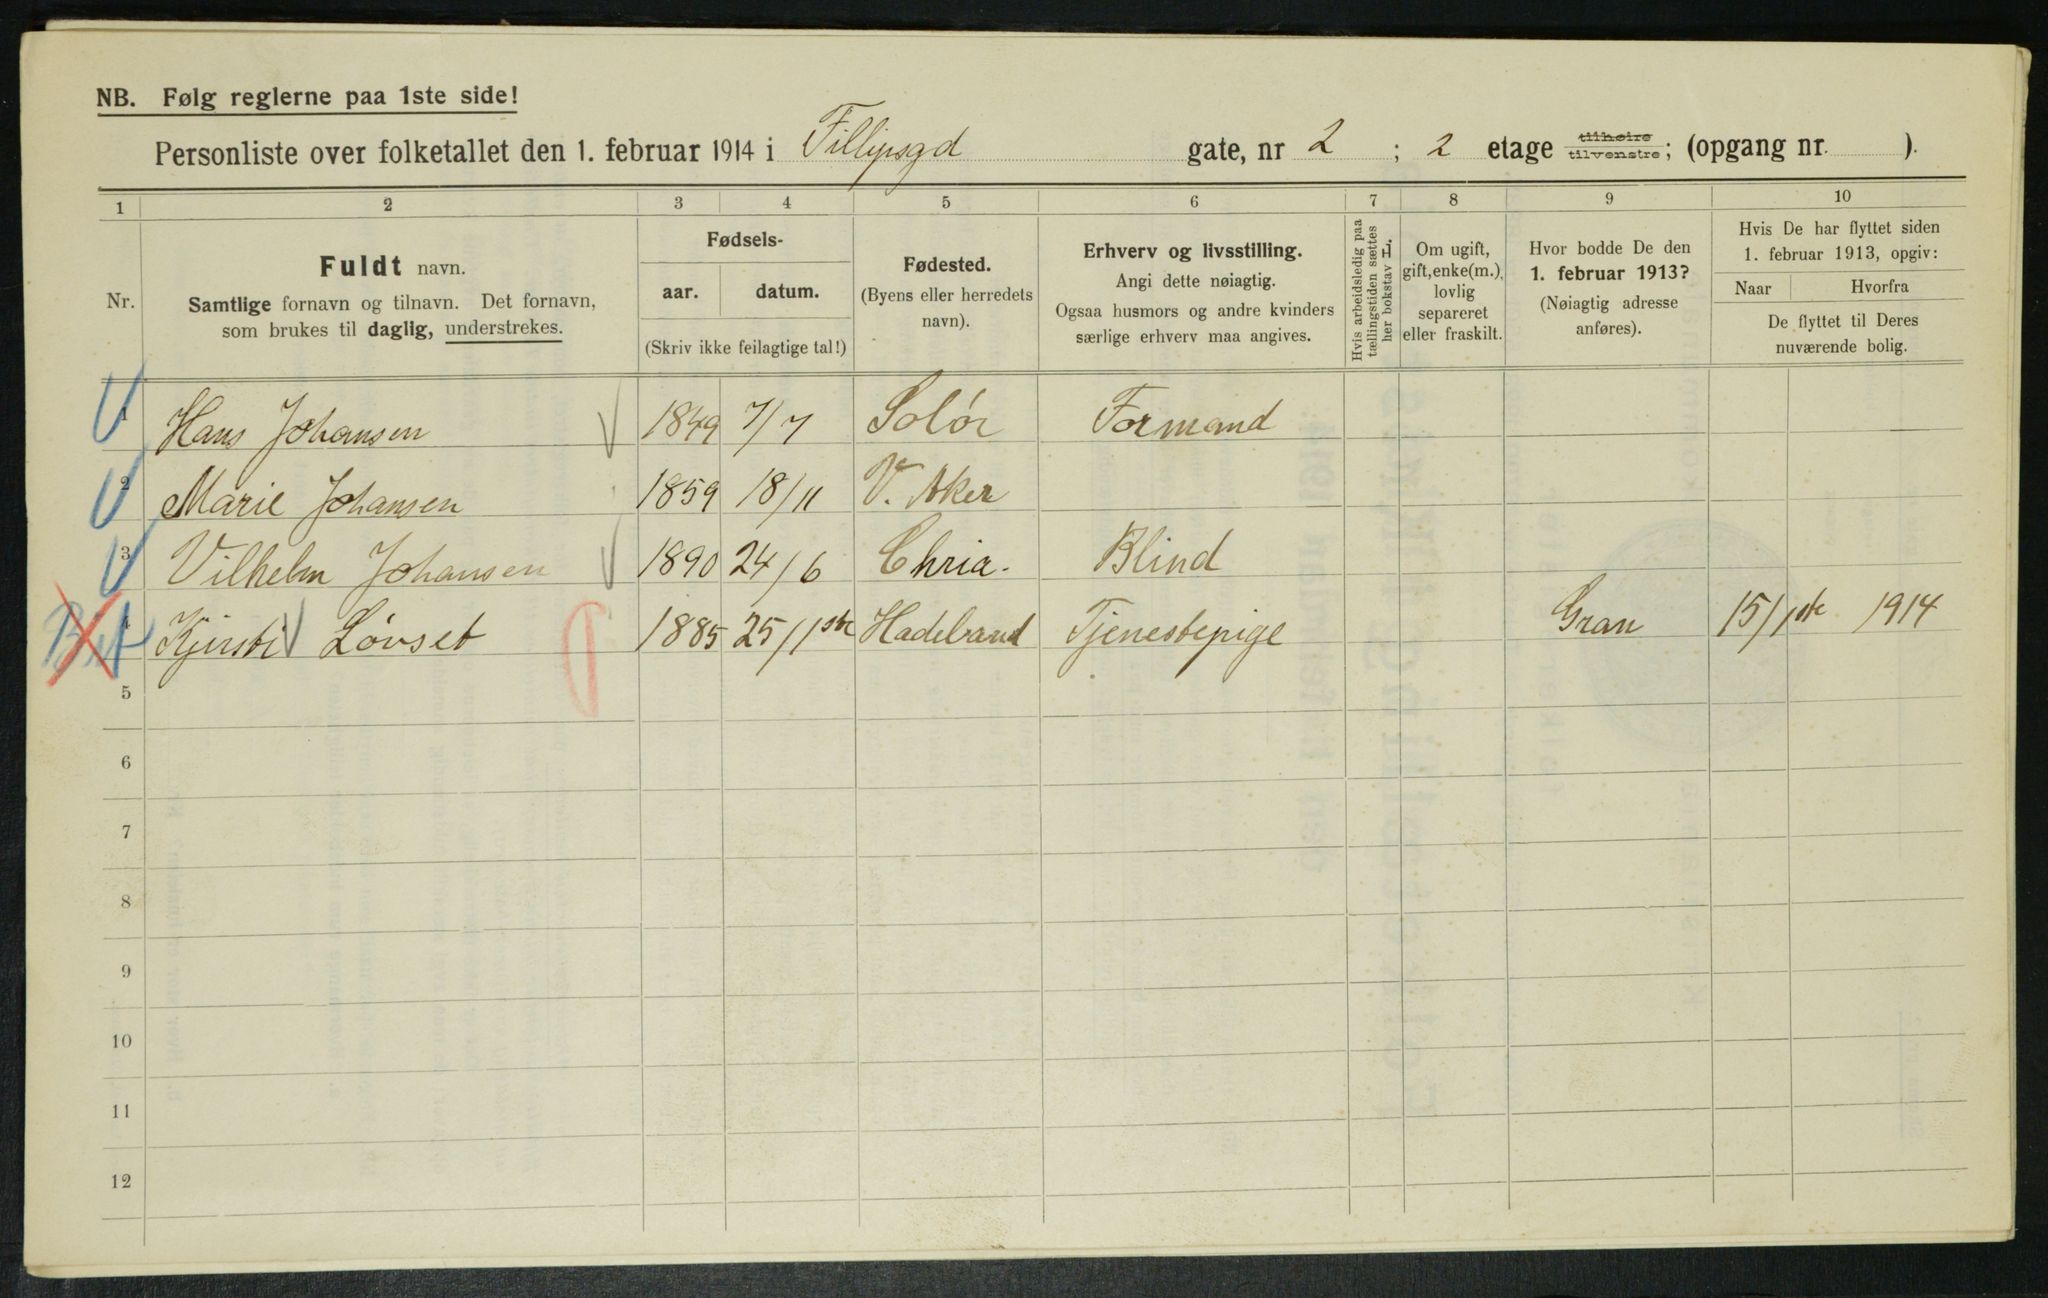 NB. Følg reglerne paa 1ste side!
Personliste over folketallet den 1. februar 1914 i Fillipsgd gate, nr 2 ; 2 etage tilhøire tilvenstre; (opgang nr. ).
1 2 3 4 5 6 7 8 9 10
Nr.
Fuldt navn.
Samtlige fornavn og tilnavn. Det fornavn,
som brukes til daglig, understrekes.
Fødsels-
aar. datum.
(Skriv ikke feilagtige tal!)
Fødested.
(Byens eller herredets
navn).
Erhverv og livsstilling.
Angi dette nøiagtig.
Ogsaa husmors og andre kvinders
særlige erhverv maa angives.
Hvis arbeidsledig paa
tællingstiden sættes
her bokstav L.
Om ugift,
gift, enke(m.),
lovlig
separeret
eller fraskilt.
Hvor bodde De den
1. februar 1913?
(Nøiagtig adresse
anføres).
Hvis De har flyttet siden
1. februar 1913, opgiv:
Naar Hvorfra
De flyttet til Deres
nuværende bolig.
1 Hans Johansen 1849 7/7 Solør Formand
2 Marie Johansen 1859 18/11 V. Aker
3 Vilhelm Johansen 1890 24/6 Chria. Blind
4 Kjirsti Løvset 1885 25/1ste Hadeland Tjenestepige Gran 15/1ste 1914
5
6
7
8
9
10
11
12